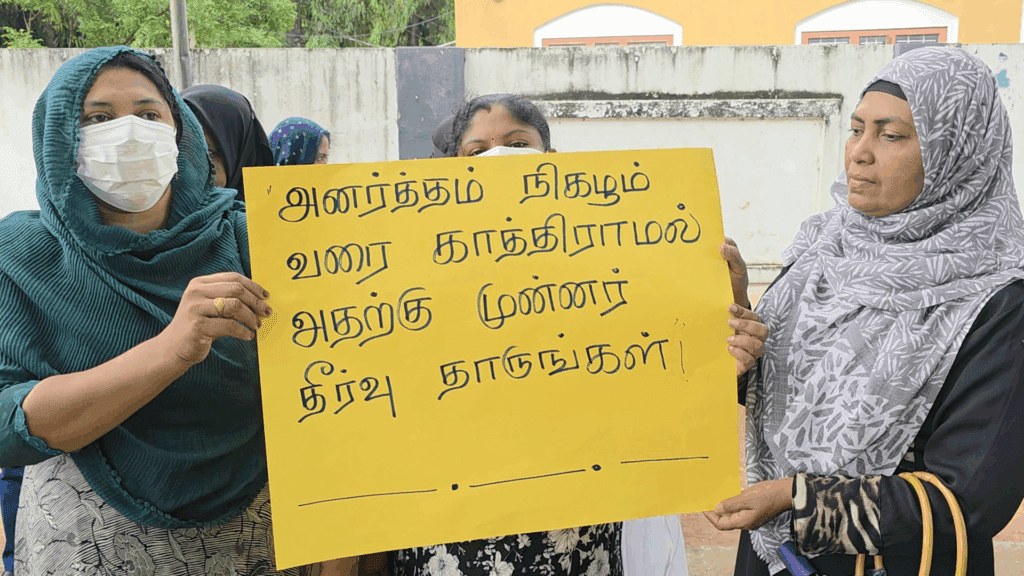 அனர்த்தம் நிகழும்
வரை காத்திராமல்
அதற்கு முன்னர்
தீர்வு தாருங்கள்!